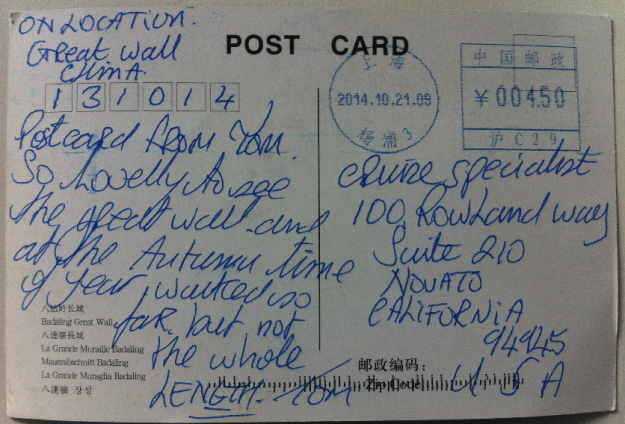 ON LOCATION.
Great wall
CHINA
POST CARD
131014
上海
2014.10.21.09
杨浦3
中国邮政
¥00450
沪C29
Postcard from Tom.
So Lovelly to see
the great wall and
at the Autumn time
of year, walked so
far, but not
the whole
LENGTH. Tom
Cruise specialist
100, Rowland way
Suite 210
NOVATO
CALIFORNIA
94945
U S A
八达岭长城
Badaling Great Wall
八達嶺長城
La Grande Muraille Badaling
Mauerabschnitt Badaling
La Grande Muraglia Badaling
八達嶺 장성
邮政编码:
Zip Code